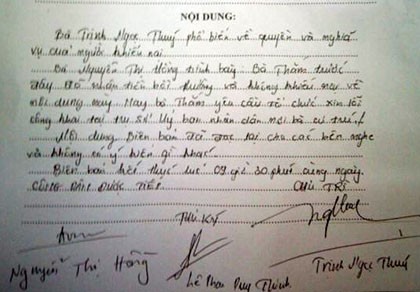 NỘI DUNG:
Bà Trịnh Ngọc Thuý phổ biến về quyền và nghĩa
vụ của người khiếu nại
Bà Nguyễn Thị Hồng trình bày: Bà Thắm trước
đây đã nhận tiền bồi thường và không khiếu nại về
nội dung này. Nay bà Thắm yêu cầu tổ chức xin lỗi
công khai tại trụ sở Uỷ ban nhân dân nơi bà cư trú.
Nội dung Biên bản đã đọc lại cho các bên nghe
và không có ý kiến gì khác.
Biên bản kết thúc lúc 09 giờ 30 phút cùng ngày
CÔNG DÂN ĐƯỢC TIẾP CHỦ TRÌ
THƯ KÝ
Nguyễn Thị Hồng Lê Phan Duy Thịnh Trịnh Ngọc Thuý